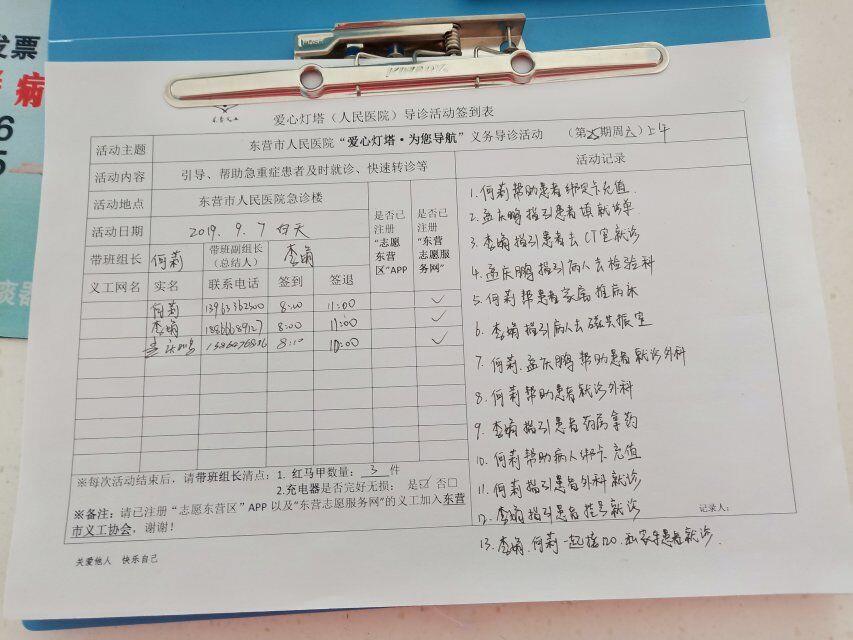 发票
病
6
5
爱心灯塔（人民医院）导诊活动签到表
活动主题 东营市人民医院“爱心灯塔·为您导航”义务导诊活动 （第 期周六）上午
活动内容 引导、帮助急重症患者及时就诊、快速转诊等
活动地点 东营市人民医院急诊楼
活动日期 2019.9.7 白天
带班组长 何莉 带班副组长（总结人） 李娟
是否已注册“志愿东营区”APP
是否已注册“东营志愿服务网”
义工网名 实名 联系电话 签到 签退
何莉 8:00 11:00 ✓
李娟 8:00 11:00 ✓
孟庆鹏 8:10 10:00 ✓
※每次活动结束后，请带班组长清点：1. 红马甲数量：3 件
2.充电器是否完好无损： 是☑ 否□
※备注：请已注册“志愿东营区”APP 以及“东营志愿服务网”的义工加入东营
市义工协会，谢谢！
关爱他人 快乐自己
活动记录
1.何莉帮助患者绑定卡充值
2.孟庆鹏指引患者填就诊单
3.李娟指引患者去CT室就诊
4.孟庆鹏指引病人去检验科
5.何莉帮患者家属推病床
6.李娟指引病人去磁共振室
7.何莉.孟庆鹏帮助患者就诊外科
8.何莉帮助患者就诊外科
9.李娟指引患者药房拿药
10.何莉帮助病人绑卡充值
11.何莉指引患者外科就诊
12.李娟指引患者挂号就诊
13.李娟.何莉一起接120.私家车患者就诊.
记录人：